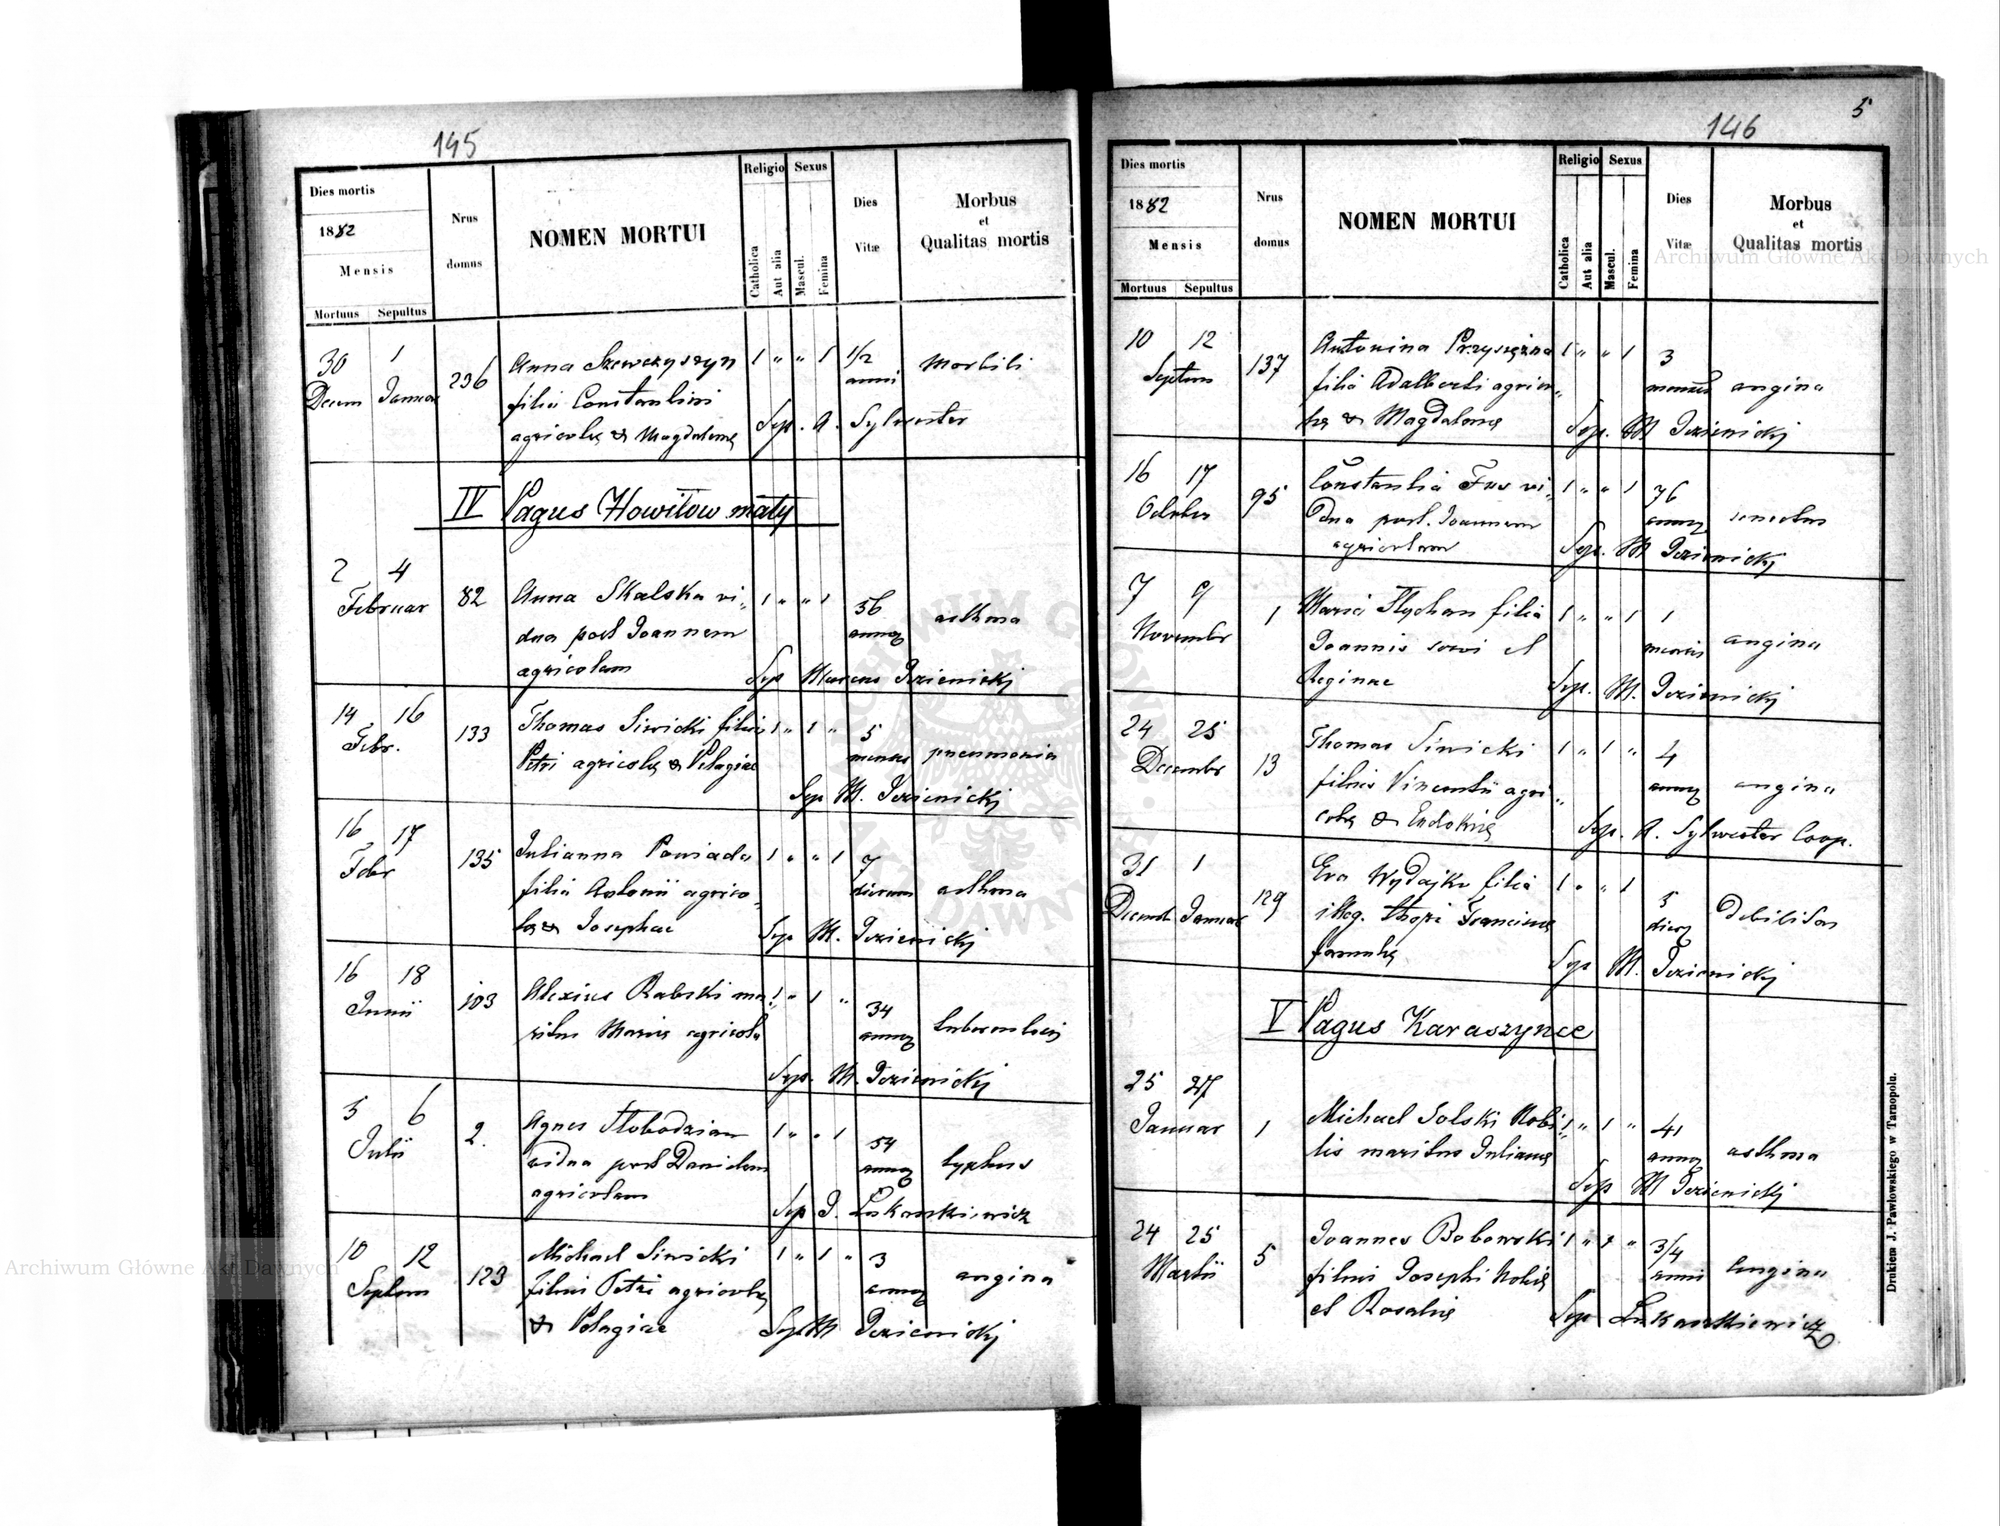 145
Dies mortis
1882
Mensis
Mortuus
Sepultus
Nrus
domus
NOMEN MORTUI
Religio
Catholica
Aut alia
Sexus
Mascul.
Femina
Dies
Vitæ
Morbus
et
Qualitas mortis
30 1
Decem Januar
236
Anna Szewczyszyn
filia Constantini
agricolę & Magdalenę
1 " " 1
1/2
anni
morbili
Sep. A. Sylwester
IV Pagus Howilow mały
2 4
Februar
82
Anna Skalska vi„
dua post Joannem
agricolam
1 " " 1
56
annor
asthma
Sep Marcus Jezienicky
14 16
Febr.
133
Thomas Siwicki filius
Petri agricolę & Pelagiae
1 " 1 "
5
menses
pneumonia
Sep M. Jezienickj
16 17
Febr
135
Julianna
filia Antonii agrico„
lę & Josephae
1 " " 1
7
dierum
asthma
Sep M. Jezienickj
16 18
Junii
103
Alexius Rabski ma„
ritus Marię agricola
1 " 1 "
34
annor
Sep. M. Jezienickj
5 6
Julii
2.
Agnes Slobodzian
vidua post Danielem
agricolam
1 " " 1
54
annor
typhus
Sep J. Lukaszkiewicz
10 12
Septem
123
Michael Siwicki
filius Petri agricolę
& Pelagiae
1 " 1 "
3
annor
angina
Sep M Jezienickj
5
146
Dies mortis
1882
Mensis
Mortuus
Sepultus
Nrus
domus
NOMEN MORTUI
Religio
Catholica
Aut alia
Sexus
Mascul.
Femina
Dies
Vitæ
Morbus
et
Qualitas mortis
10 12
Septem
137
Antonina Przysiężna
filia Adalberti agrico„
lę & Magdalenę
1 " " 1
3
menses
angina
Sep. M Jezienickj
16 17
October
95
Constantia Fus vi„
dua post. Joannem
agricolam
1 " " 1
76
annor
senectus
Sep. M Jezienickj
7 9
Novembr
1
Maria filia
Joannis servi et
Reginae
1 " " 1
1
mensis
angina
Sep. M. Jezienickj
24 25
Decembr
13
Thomas Siwicki
filius Vincentii agri„
colę & Eudokię
1 " 1 "
4
annor
angina
Sep. A. Sylwester Coop.
31 1
Decemb Januar
129
Eva Wydajko filia
illeg. thori Franciscę
famulę
1 " " 1
5
dier
Debilitas
Sep M. Jezienickj
V Pagus Karaszynce
25 27
Januar
1
Michael Solski Nobi„
lis maritus Julianę
1 " 1 "
41
annor
asthma
Sep M Jezienickj
24 25
Martii
5
Joannes Bobowski
filius Josephi
et Rosalię
1 " 1 "
3/4
anni
Angina
Sep Lukaszkiewicz
Drukiem J. Pawłowskiego w Tarnopolu.
Archiwum Główne Akt Dawnych
Archiwum Główne Akt Dawnych
ARCHIWUM GŁÓWNE AKT DAWNYCH